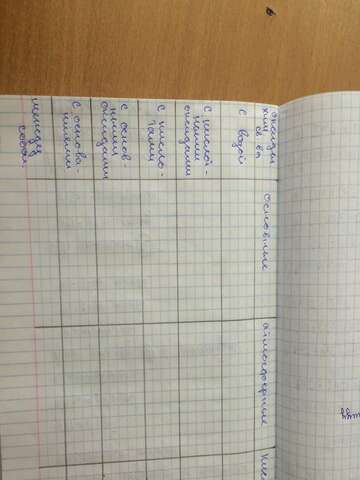 оксиды
хим
св ва
основные
амфотерные
с водой
с кислот-
ными
оксидами
с кисло-
тами
с основ-
ными
оксидами
с основа-
ниями
между
собой